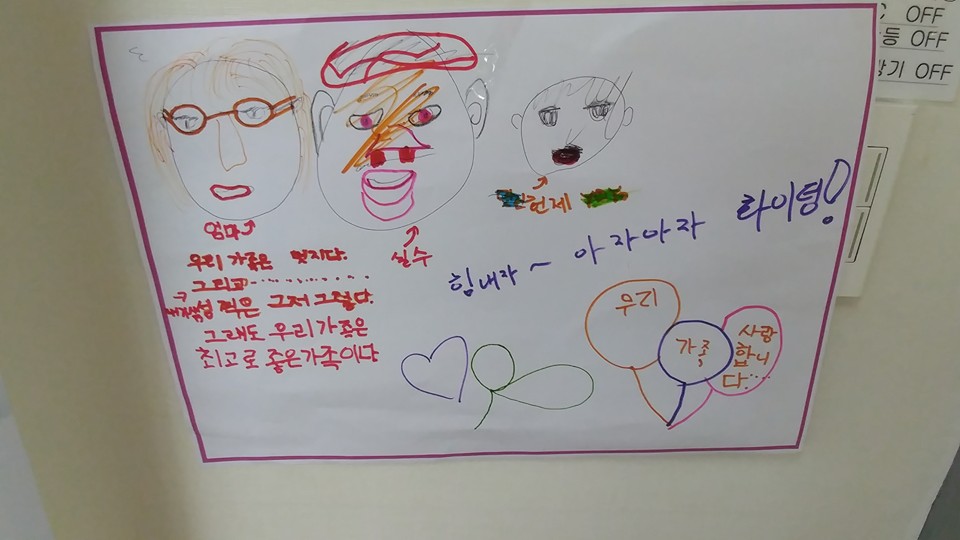 OFF
등 OFF
기 OFF
엄마
실수
헌제
우리 가족은 멋지다.
그리고
찍은 그저 그렇다.
그래도 우리가족은
최고로 좋은가족이다
힘내자~ 아자아자 화이팅!
우리
가족
사랑
합니
다...